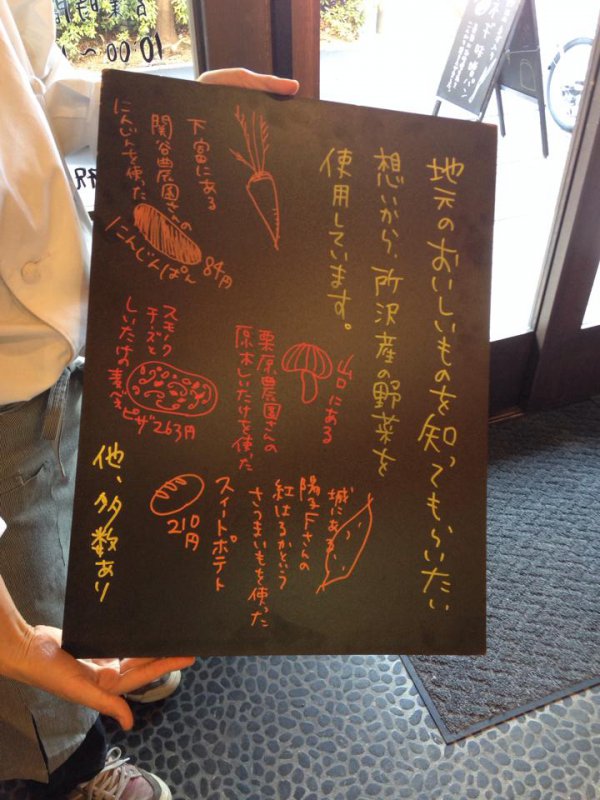 地元のおいしいものを知ってもらいたい
想いから、所沢産の野菜を
使用しています。
下富にある
関谷農園さんの
にんじんを使った
にんじんぱん 84円
山口にある
栗原農園さんの
原木しいたけを使った
スモーク
チーズと
しいたけの
ピザ263円
城にある、
さんの
紅はるかという
さつまいもを使った
スイートポテト
210
円
他、多数あり
10:00〜